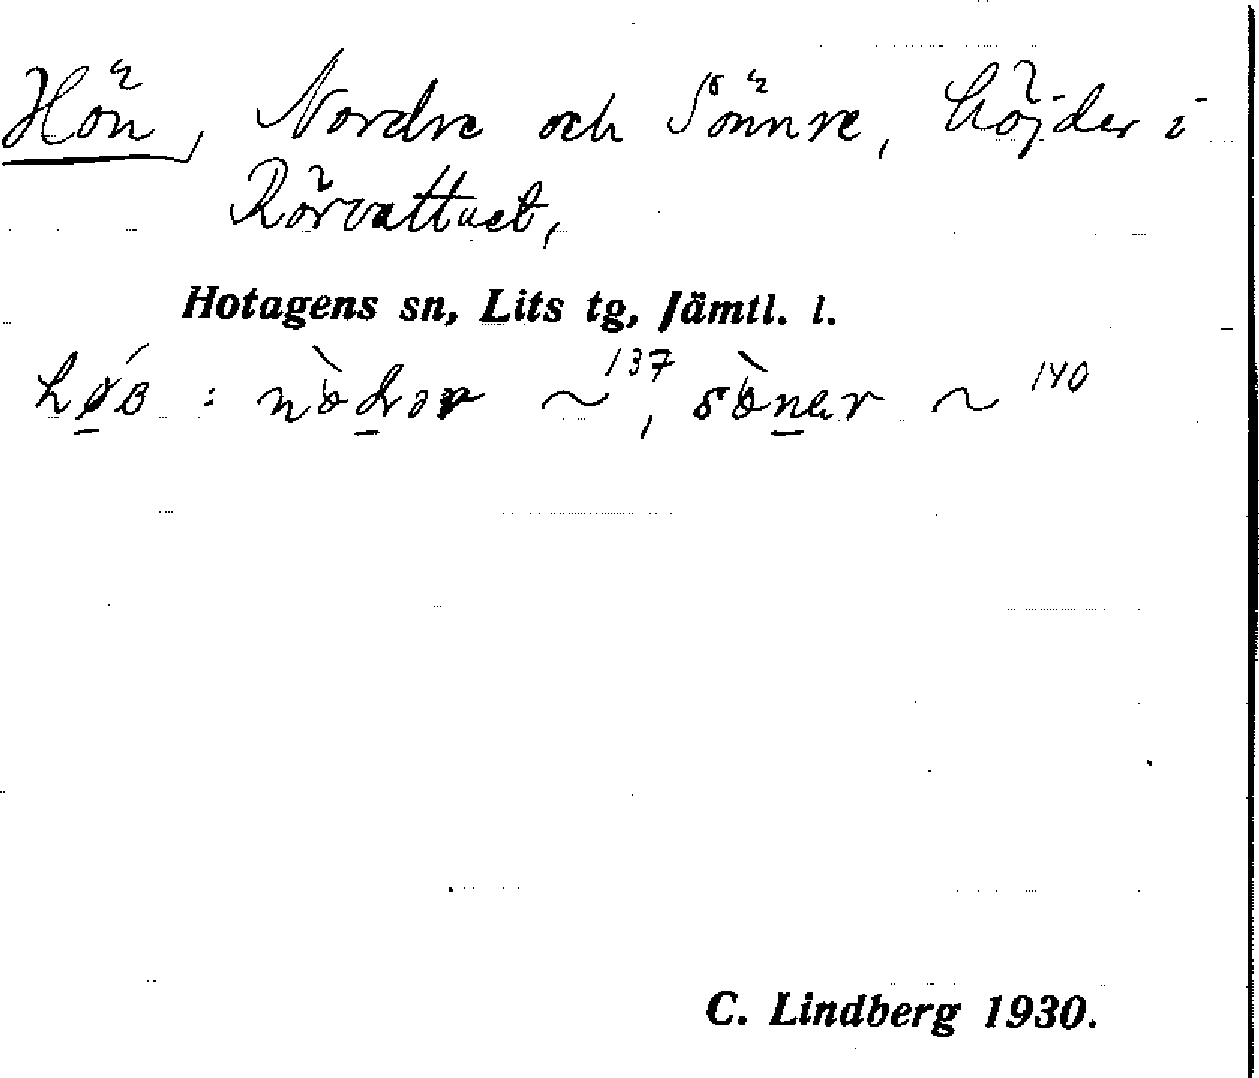 Hön, Nordre och Sönnre, höjder i
Rörvattnet,
Hotagens sn, Lits tg, Jämtl. l.
137, 140
C. Lindberg 1930.